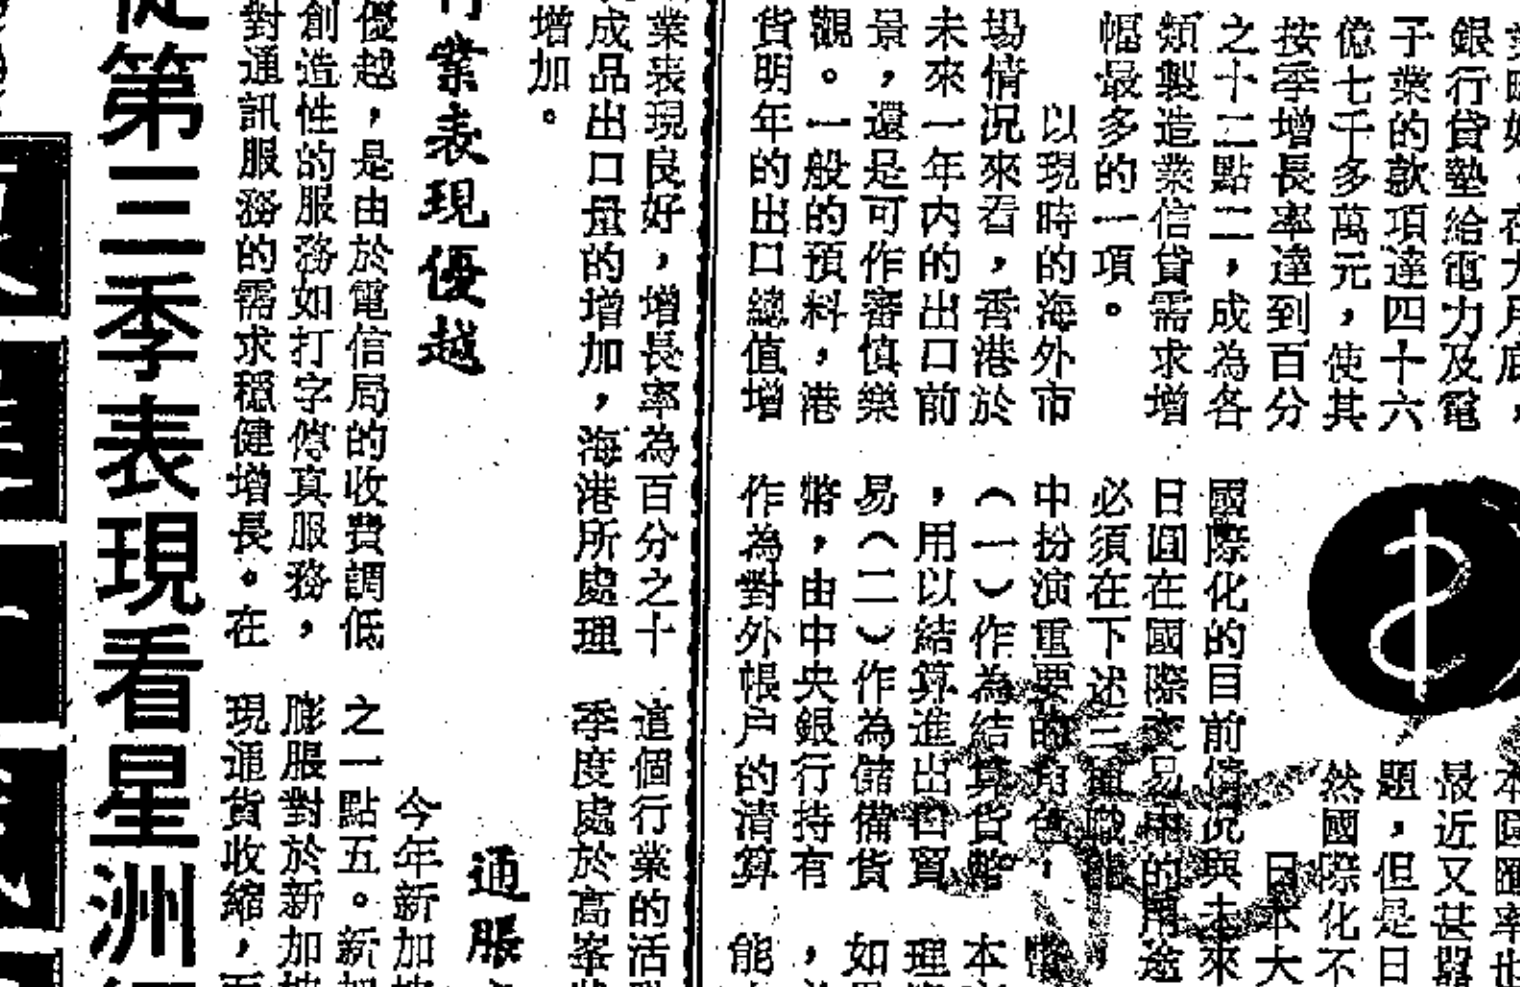 銀行貸墊給電力及電
子業的款項達四十六
億七千多萬元，使其
按季增長率達到百分
之十二點二，成為各
類製造業信貸需求增
幅最多的一項。
以現時的海外市
場情況來看，香港於
未來一年內的出口前
景，還是可作審慎樂
觀。一般的預料，港
貨明年的出口總值增
最近又甚囂
題，但是日
然國際化不
日本大
國際化的目前情況與未來
日圓在國際交易中的用途
必須在下述三種職能
中扮演重要的角色，
（一）作為結算貨幣
，用以結算進出口貿
易（二）作為儲備貨
幣，由中央銀行持有
作為對外帳户的清算
本
理
如
，
能
業表現良好，增長率為百分之十
成品出口量的增加，海港所處理
增加。
這個行業的活
季度處於高
業表現優越
優越，是由於電信局的收費調低
創造性的服務如打字傳真服務，
對通訊服務的需求穩健增長。在
通脹
今年新加坡
之一點五。新加
膨脹對於新加坡
現通貨收縮，而
從第三季表現看星洲